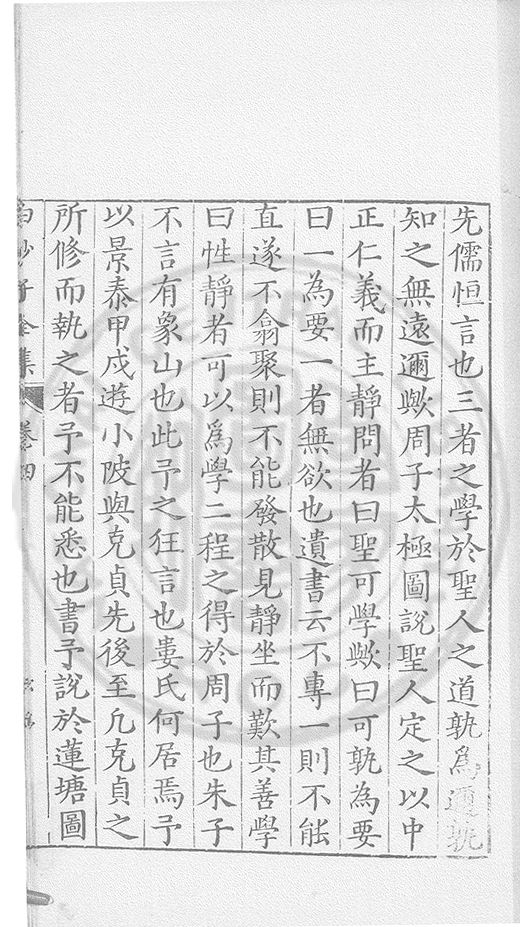 先儒恒言也三者之學於聖人之道孰為邇孰
知之無遠邇歟周子太極圖說聖人定之以中
正仁義而主靜問者曰聖可學歟曰可孰為要
曰一為要一者無欲也遺書云不專一則不能
直遂不翕聚則不能發散見靜坐而歎其善學
曰性靜者可以爲學二程之得於周子也朱子
不言有象山也此予之狂言也婁氏何居焉予
以景泰甲戌遊小陂與克貞先後至凡克貞之
所修而執之者予不能悉也書予說於蓮塘圖
白沙子全集 卷四